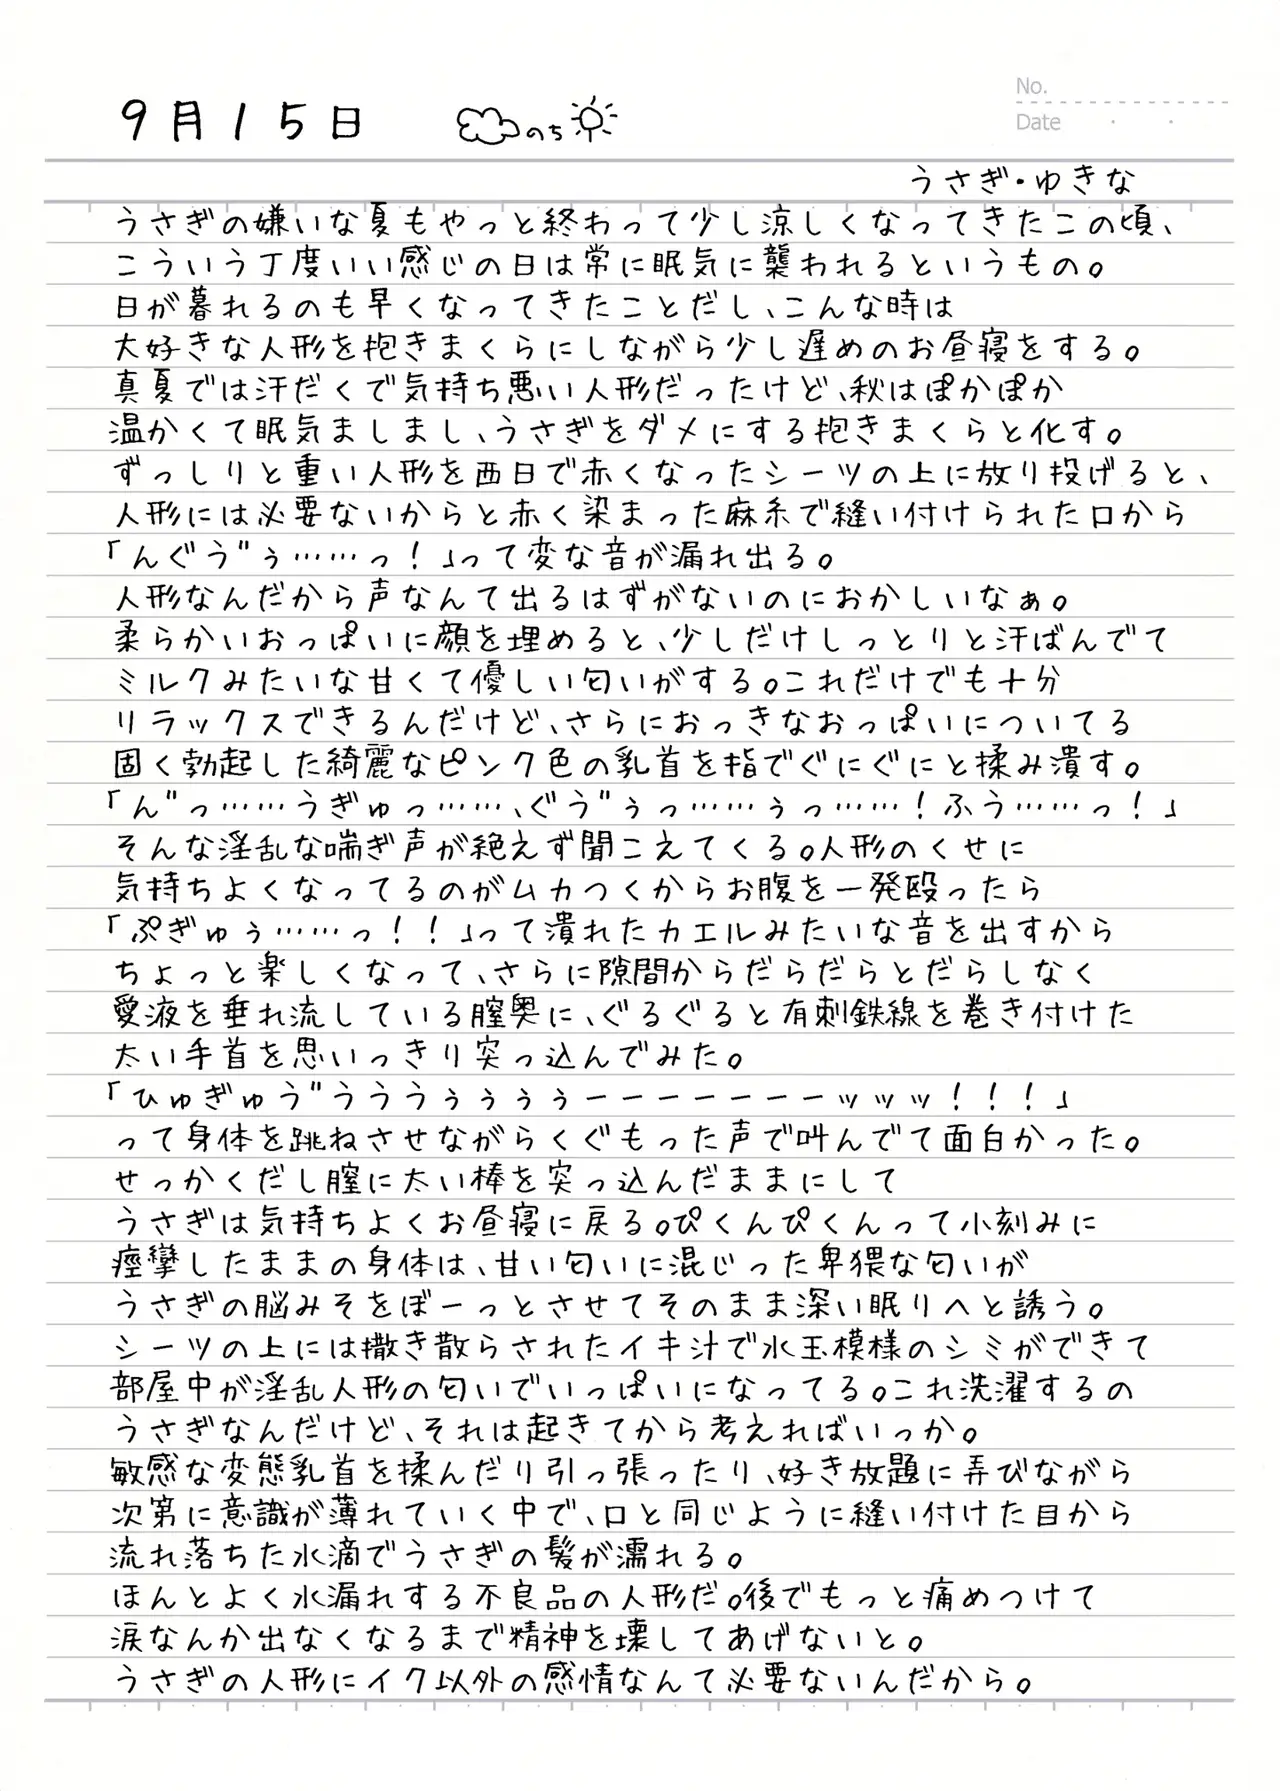 No.
Date
9月15日 のち
うさぎ・ゆきな
うさぎの嫌いな夏もやっと終わって少し涼しくなってきたこの頃、
こういう丁度いい感じの日は常に眠気に襲われるというもの。
日が暮れるのも早くなってきたことだし、こんな時は
大好きな人形を抱きまくらにしながら少し遅めのお昼寝をする。
真夏では汗だくで気持ち悪い人形だったけど、秋はぽかぽか
温かくて眠気ましまし、うさぎをダメにする抱きまくらと化す。
ずっしりと重い人形を西日で赤くなったシーツの上に放り投げると、
人形には必要ないからと赤く染まった麻糸で縫い付けられた口から
「んぐう゛ぅ……っ！」って変な音が漏れ出る。
人形なんだから声なんて出るはずがないのにおかしいなぁ。
柔らかいおっぱいに顔を埋めると、少しだけしっとりと汗ばんでて
ミルクみたいな甘くて優しい匂いがする。これだけでも十分
リラックスできるんだけど、さらにおっきなおっぱいについてる
固く勃起した綺麗なピンク色の乳首を指でぐにぐにと揉み潰す。
「ん゛っ……うぎゅっ……、ぐう゛ぅっ……ぅっ……！ふう……っ！」
そんな淫乱な喘ぎ声が絶えず聞こえてくる。人形のくせに
気持ちよくなってるのがムカつくからお腹を一発殴ったら
「ぷぎゅぅ……っ！！」って潰れたカエルみたいな音を出すから
ちょっと楽しくなって、さらに隙間からだらだらとだらしなく
愛液を垂れ流している膣奥に、ぐるぐると有刺鉄線を巻き付けた
太い手首を思いっきり突っ込んでみた。
「ひゅぎゅう゛うううぅぅぅぅーーーーーーーッッッ！！！」
って身体を跳ねさせながらくぐもった声で叫んでて面白かった。
せっかくだし膣に太い棒を突っ込んだままにして
うさぎは気持ちよくお昼寝に戻る。ぴくんぴくんって小刻みに
痙攣したままの身体は、甘い匂いに混じった卑猥な匂いが
うさぎの脳みそをぼーっとさせてそのまま深い眠りへと誘う。
シーツの上には撒き散らされたイキ汁で水玉模様のシミができて
部屋中が淫乱人形の匂いでいっぱいになってる。これ洗濯するの
うさぎなんだけど、それは起きてから考えればいっか。
敏感な変態乳首を揉んだり引っ張ったり、好き放題に弄びながら
次第に意識が薄れていく中で、口と同じように縫い付けた目から
流れ落ちた水滴でうさぎの髪が濡れる。
ほんとよく水漏れする不良品の人形だ。後でもっと痛めつけて
涙なんか出なくなるまで精神を壊してあげないと。
うさぎの人形にイク以外の感情なんて必要ないんだから。